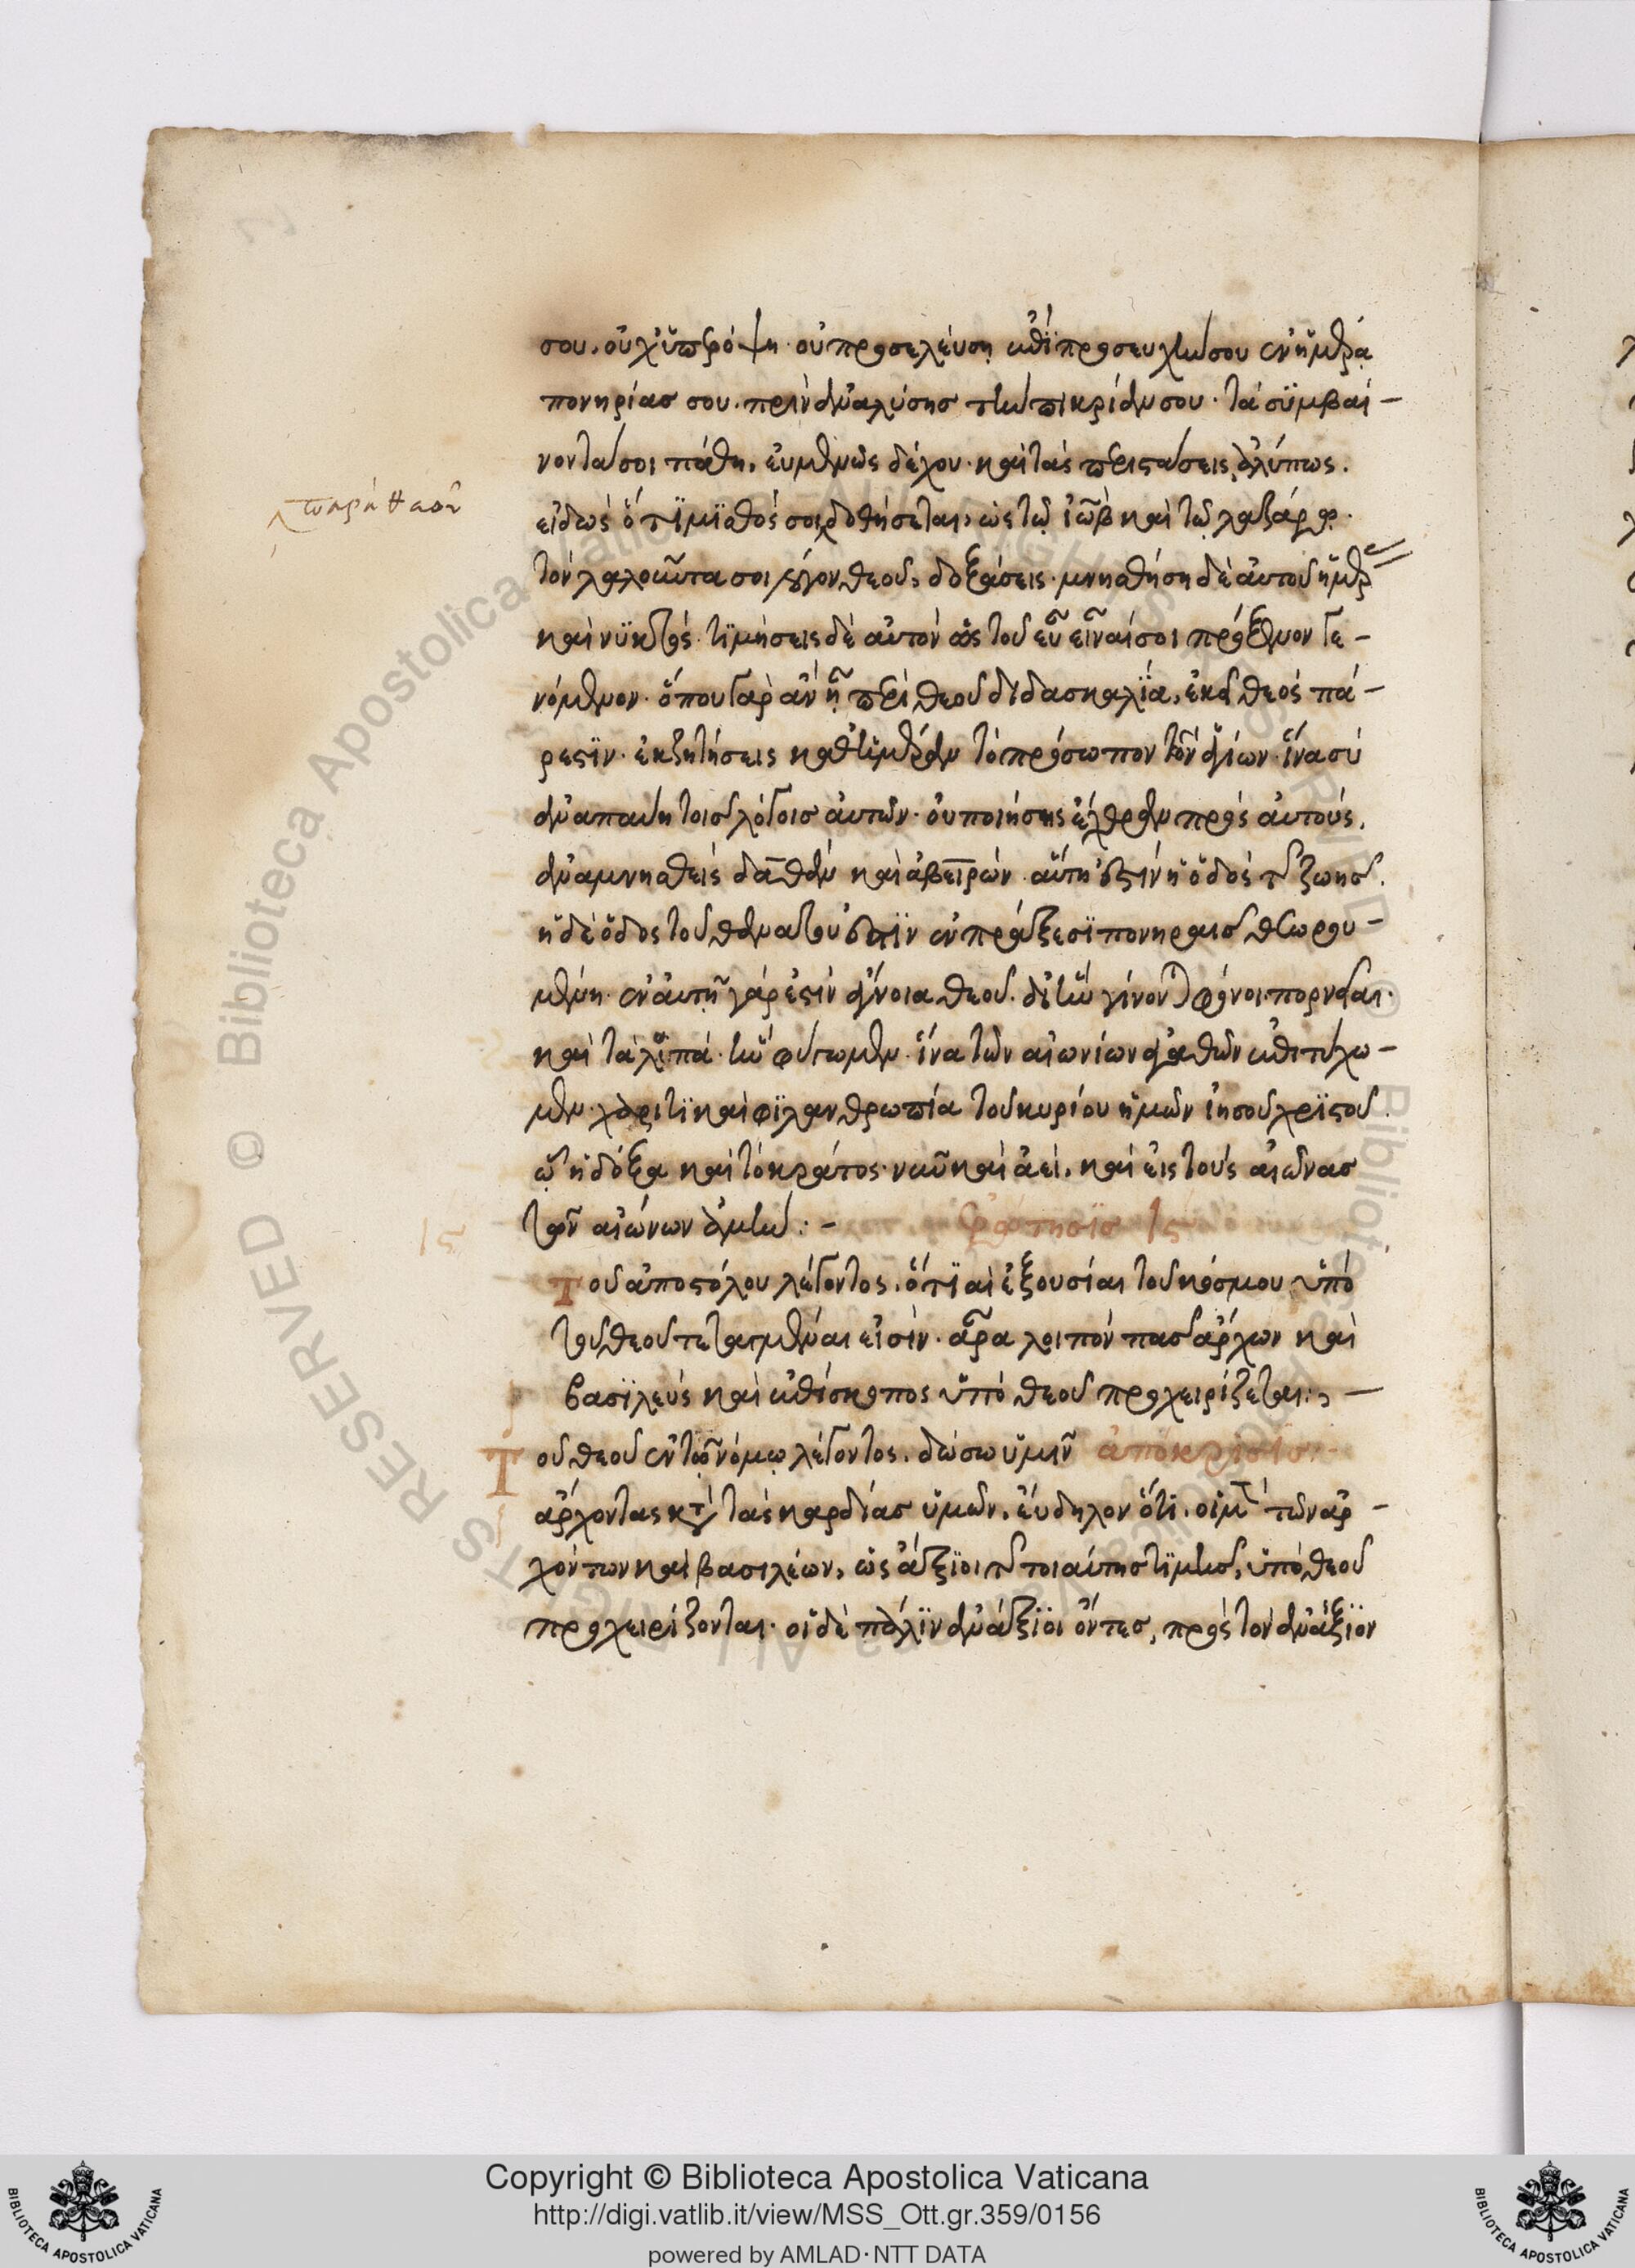 σου. οὐχ ὑπερόψη. οὐ προσελεύση ἐπὶ προσευχήν σου ἐν ἡμέρᾳ
πονηρίας σου. πρὶν ἀναλύσης τὴν πικρίαν σου. τὰ συμβαί-
νοντα σοι πάθη, εὐμενῶς δέχου. καὶ τὰς περιστάσεις ἀλύπως.
εἰδὼς ὅτι μισθός σοι δοθήσεται, ὡς τῷ ἰὼβ καὶ τῷ λαζάρῳ.
τὸν λαλοῦντα σοι λόγον θεοῦ, δοξάσεις. μνησθήση δὲ αὐτοῦ ἡμέρας
καὶ νυκτός. τιμήσεις δὲ αὐτὸν ὡς τοῦ εὖ εἶναί σοι πρόξενον γε-
νόμενον. ὅπου γὰρ ἂν ᾖ περὶ θεοῦ διδασκαλία, ἐκεῖ θεὸς πά-
ρεστιν. ἐκζητήσεις καθ' ἡμέραν τὸ πρόσωπον τῶν ἁγίων. ἵνα σὺ
ἀναπαύη τοῖς λόγοις αὐτῶν. οὐ ποιήσης ἔχθραν πρὸς αὐτούς.
ἀναμνησθεὶς δαθὰν καὶ ἀβειρών. αὕτη ἐστὶν ἡ ὁδὸς τῆς ζωῆς.
ἡ δὲ ὁδὸς τοῦ θανάτου ἐστὶν ἐν πράξεσι πονηραῖς θεωρου-
μένη. ἐν αὐτῇ γάρ ἐστιν ἄγνοια θεοῦ. δι' ἣν γίνονται φόνοι. πορνεῖαι.
καὶ τὰ λοιπά. ἣν φύγωμεν. ἵνα τῶν αἰωνίων ἀγαθῶν ἐπιτύχω-
μεν. χάριτι καὶ φιλανθρωπία τοῦ κυρίου ἡμῶν ἰησοῦ χριστοῦ.
ᾧ ἡ δόξα καὶ τὸ κράτος. νῦν καὶ ἀεί, καὶ εἰς τοὺς αἰῶνας
τῶν αἰώνων ἀμήν:- Ἐρώτησις ιϛ
ιϛ
Τοῦ ἀποστόλου λέγοντος, ὅτι αἱ ἐξουσίαι τοῦ κόσμου ὑπὸ
τοῦ θεοῦ τεταγμέναι εἰσίν. ἆρα λοιπὸν πᾶς ἄρχων καὶ
βασιλεὺς καὶ ἐπίσκοπος ὑπὸ θεοῦ προχειρίζεται:, -
Τοῦ θεοῦ ἐν τῷ νόμῳ λέγοντος. δώσω ὑμῖν ἀπόκρισις:-
ἄρχοντας κατὰ τὰς καρδίας ὑμῶν. εὔδηλον ὅτι. οἱ μὲν τῶν ἀρ-
χόντων καὶ βασιλέων, ὡς ἄξιοι τῆς τοιαύτης τιμῆς, ὑπὸ θεοῦ
προχειρίζονται. οἱ δὲ πάλιν ἀνάξιοι ὄντες, πρὸς τὸν ἀνάξιον
Copyright © Biblioteca Apostolica Vaticana
http://digi.vatlib.it/view/MSS_Ott.gr.359/0156
powered by AMLAD·NTT DATA
BIBLIOTECA APOSTOLICA VATICANA
BIBLIOTECA APOSTOLICA VATICANA